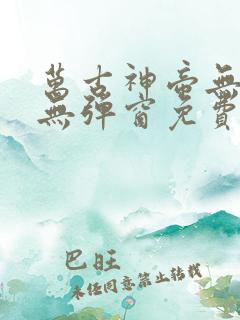 萬古神帝無
無彈窗免費
巴旺
未經同意禁止轉載